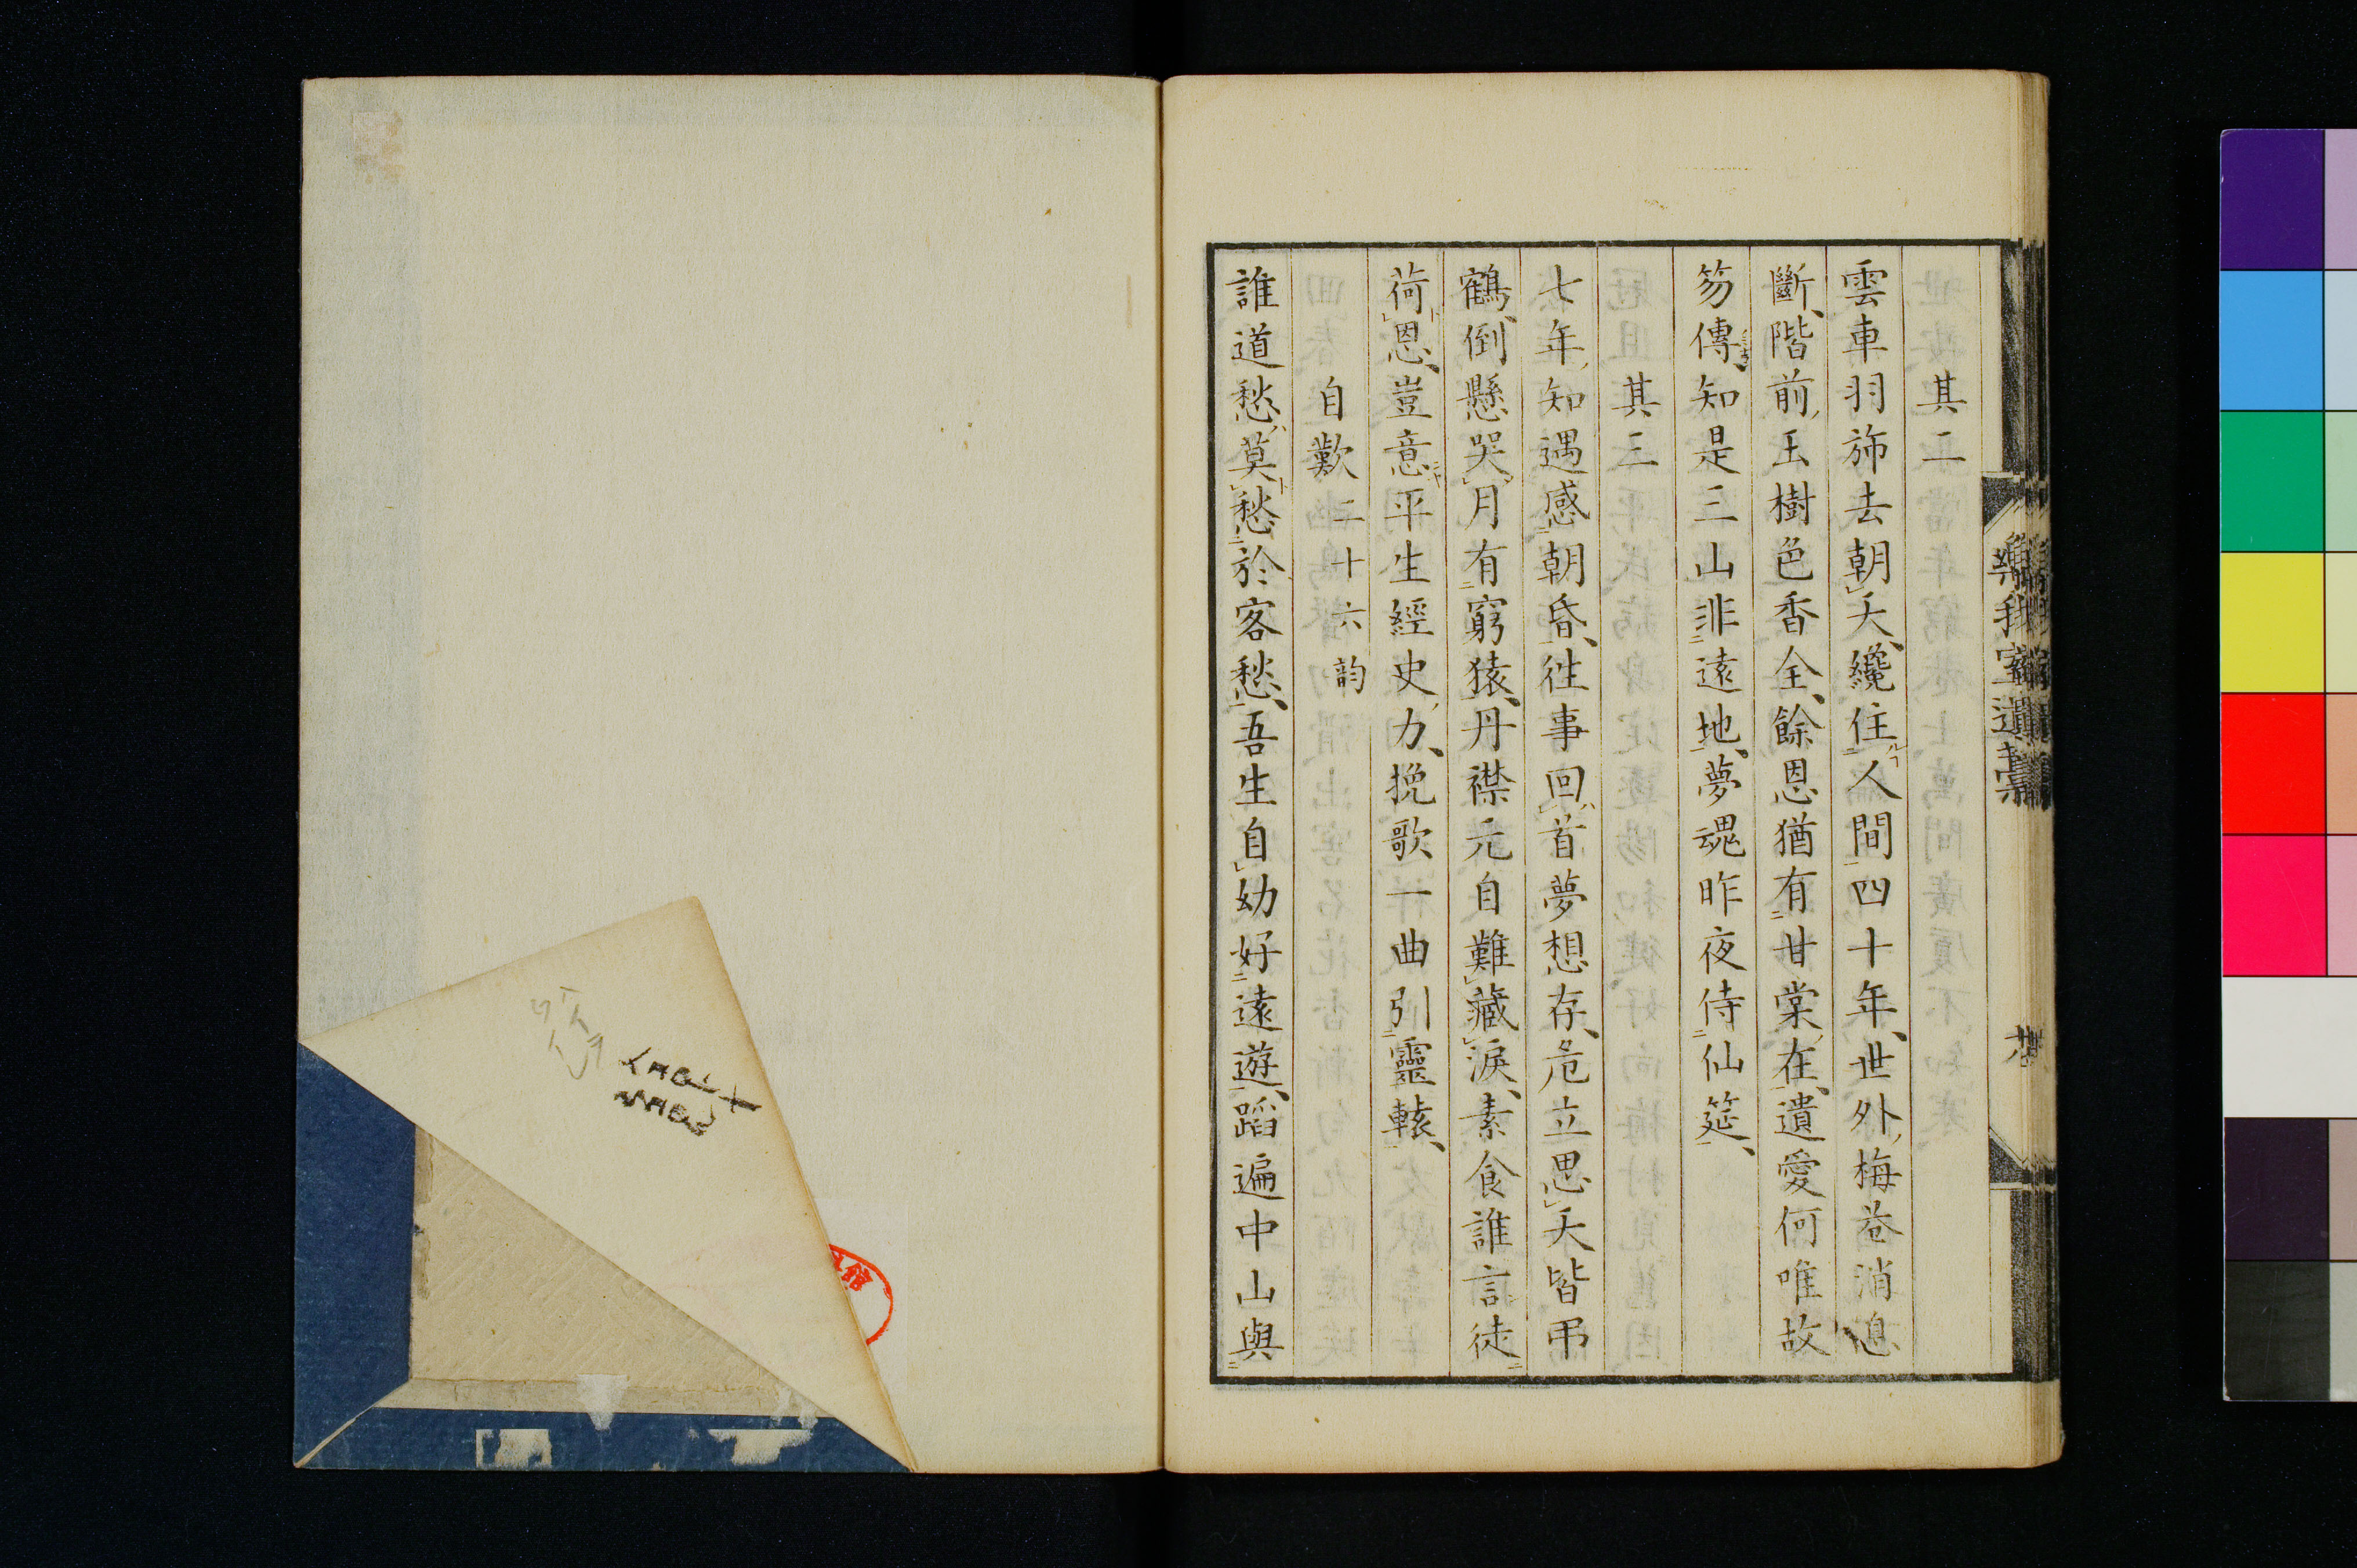 其二
雲車羽斾去朝天纔住人間四十年世外梅花消息
斷階前玉樹色香全餘恩猶有甘棠在遺愛何唯故
笏傳知是三山非遠地夢魂昨夜侍仙筵
其三
七年知遇感朝昏往事回首夢想存危立思天皆弔
鶴倒懸哭月有窮猿丹襟元自難藏淚素食誰言徒
荷恩豈意平生經史力挽歌一曲引靈轅
自歎二十六韵
誰道愁莫愁於客愁吾生自幼好遠遊蹈遍中山與
我室遺稾